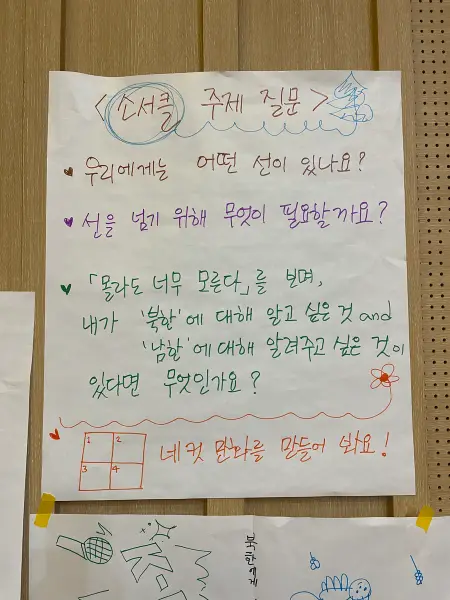 <소서클 주제 질문>
우리에게는 어떤 선이 있나요?
선을 넘기 위해 무엇이 필요할까요?
「몰라도 너무 모른다」를 보며,
내가 '북한'에 대해 알고 싶은 것 and
'남한'에 대해 알려주고 싶은 것이
있다면 무엇인가요?
1 2
3 4
네 컷 만화를 만들어 봐요!
북한에게